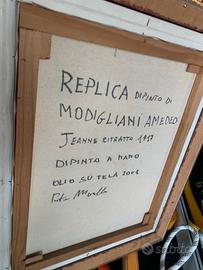 REPLICA DIPINTO DI
MODIGLIANI AMEDEO
JEANNE RITRATTO 1917
DIPINTO A MANO
OLIO SU TELA 2001
subito